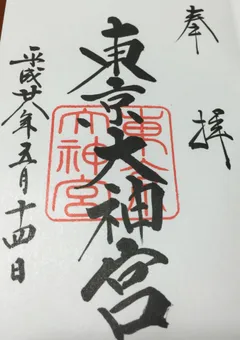 奉拝
東京大神宮
東京大神宮
平成廿八年五月十四日